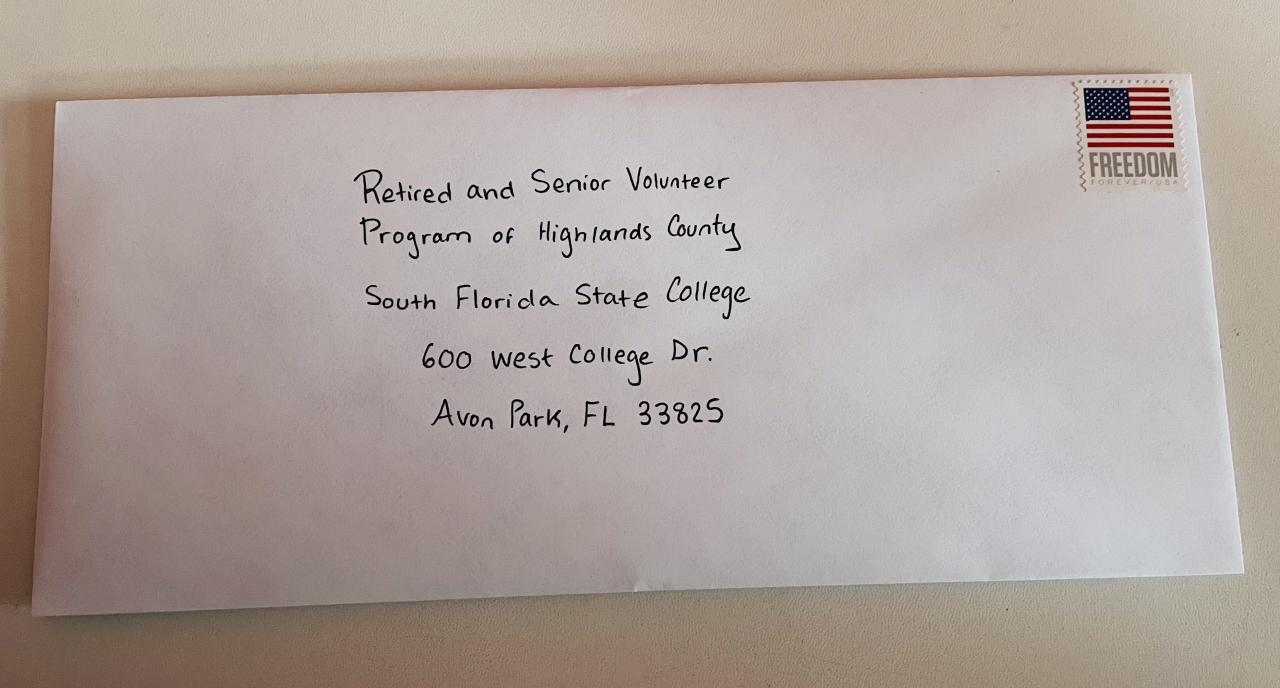 FREEDOM
FOREVER/USA
Retired and Senior Volunteer
Program of Highlands County
South Florida State College
600 West College Dr.
Avon Park, FL 33825